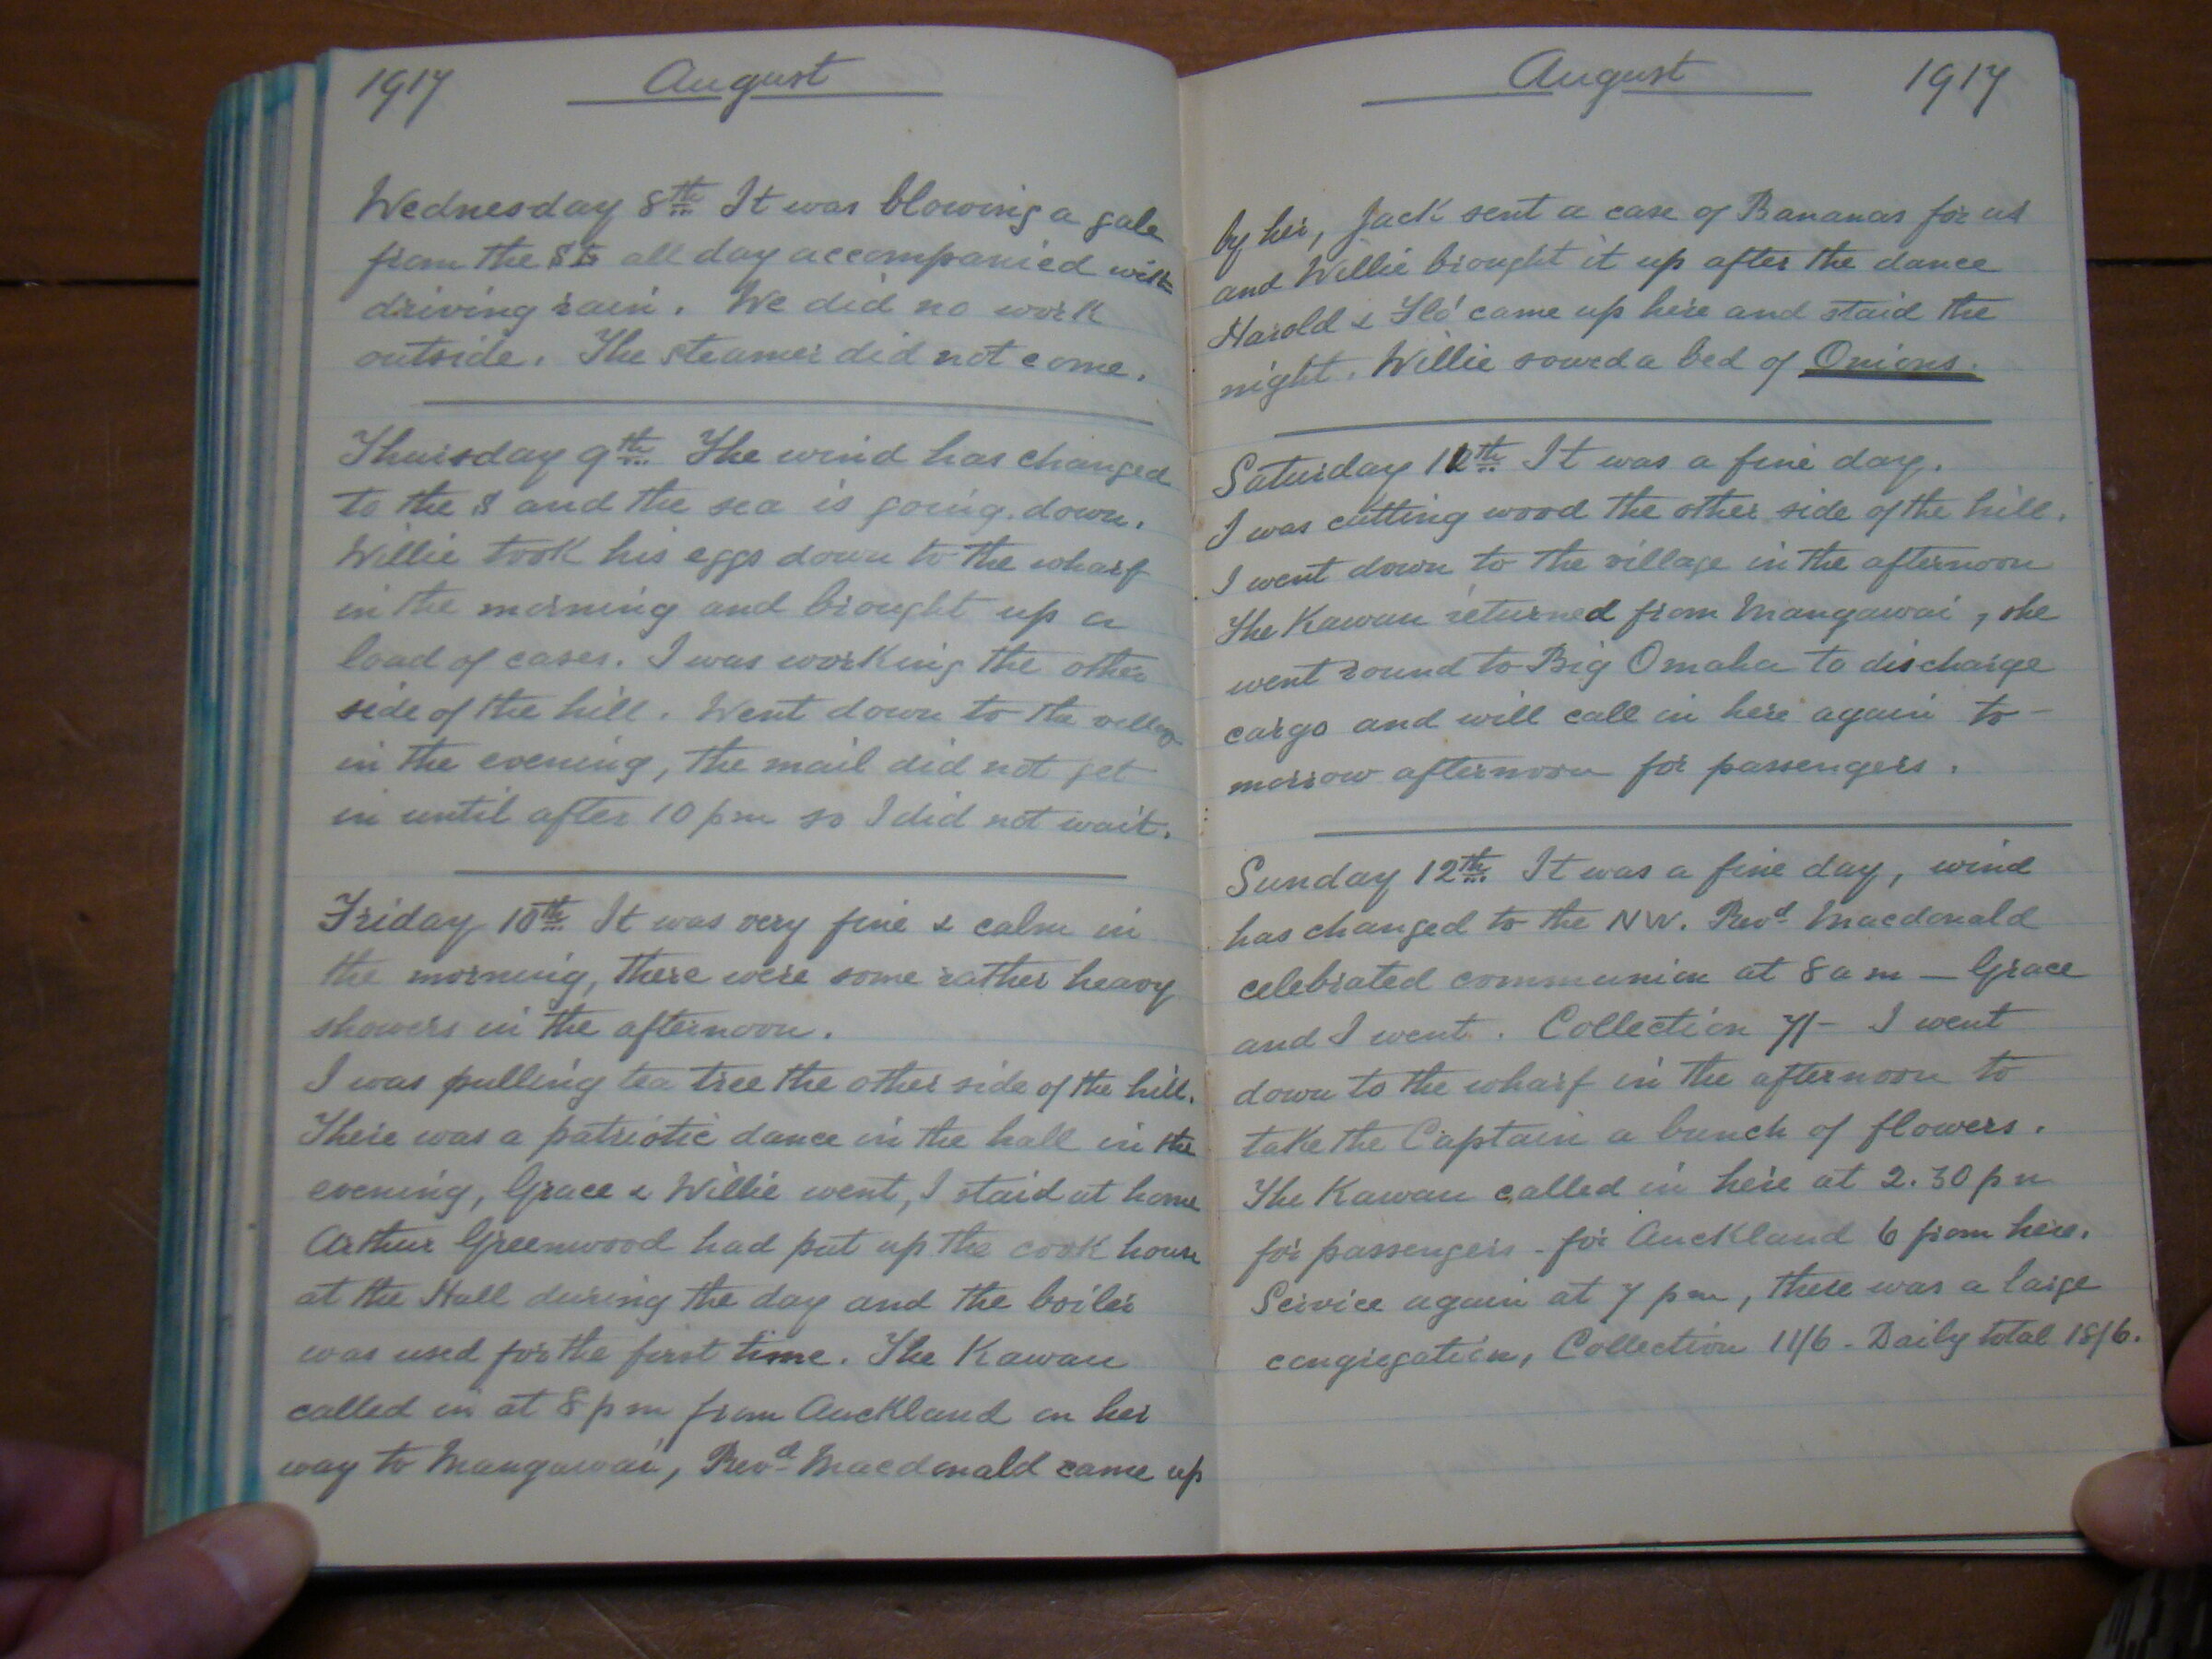 1917 August
Wednesday 8th It was blowing a gale
from the SE all day accompanied with
driving rain. We did no work
outside. The steamer did not come.
Thursday 9th The wind has changed
to the S and the sea is going down.
Willie took his eggs down to the wharf
in the morning and brought up a
load of cases. I was working the other
side of the hill. Went down to the village
in the evening, the mail did not get
in until after 10 pm so I did not wait.
Friday 10th It was very fine & calm in
the morning, there were some rather heavy
showers in the afternoon.
I was pulling tea tree the other side of the hill.
There was a patriotic dance in the hall in the
evening, Grace & Willie went, I staid at home
Arthur Greenwood had put up the cook house
at the Hall during the day and the boiler
was used for the first time. The Kawau
called in at 8 pm from Auckland on her
way to Mangawai, Revd Macdonald came up
August 1917
by her, Jack sent a case of Bananas for us
and Willie brought it up after the dance
Harold & Flo' came up here and staid the
night. Willie sowed a bed of Onions.
Saturday 11th It was a fine day.
I was cutting wood the other side of the hill.
I went down to the village in the afternoon
The Kawau returned from Mangawai, she
went round to Big Omaha to discharge
cargo and will call in here again to-
morrow afternoon for passengers.
Sunday 12th It was a fine day, wind
has changed to the NW. Revd Macdonald
celebrated communion at 8 am — Grace
and I went. Collection 7/- I went
down to the wharf in the afternoon to
take the Captain a bunch of flowers.
The Kawau called in here at 2.30 pm
for passengers - for Auckland 6 from here.
Service again at 7 pm, there was a large
congregation, Collection 11/6 - Daily total 18/6.